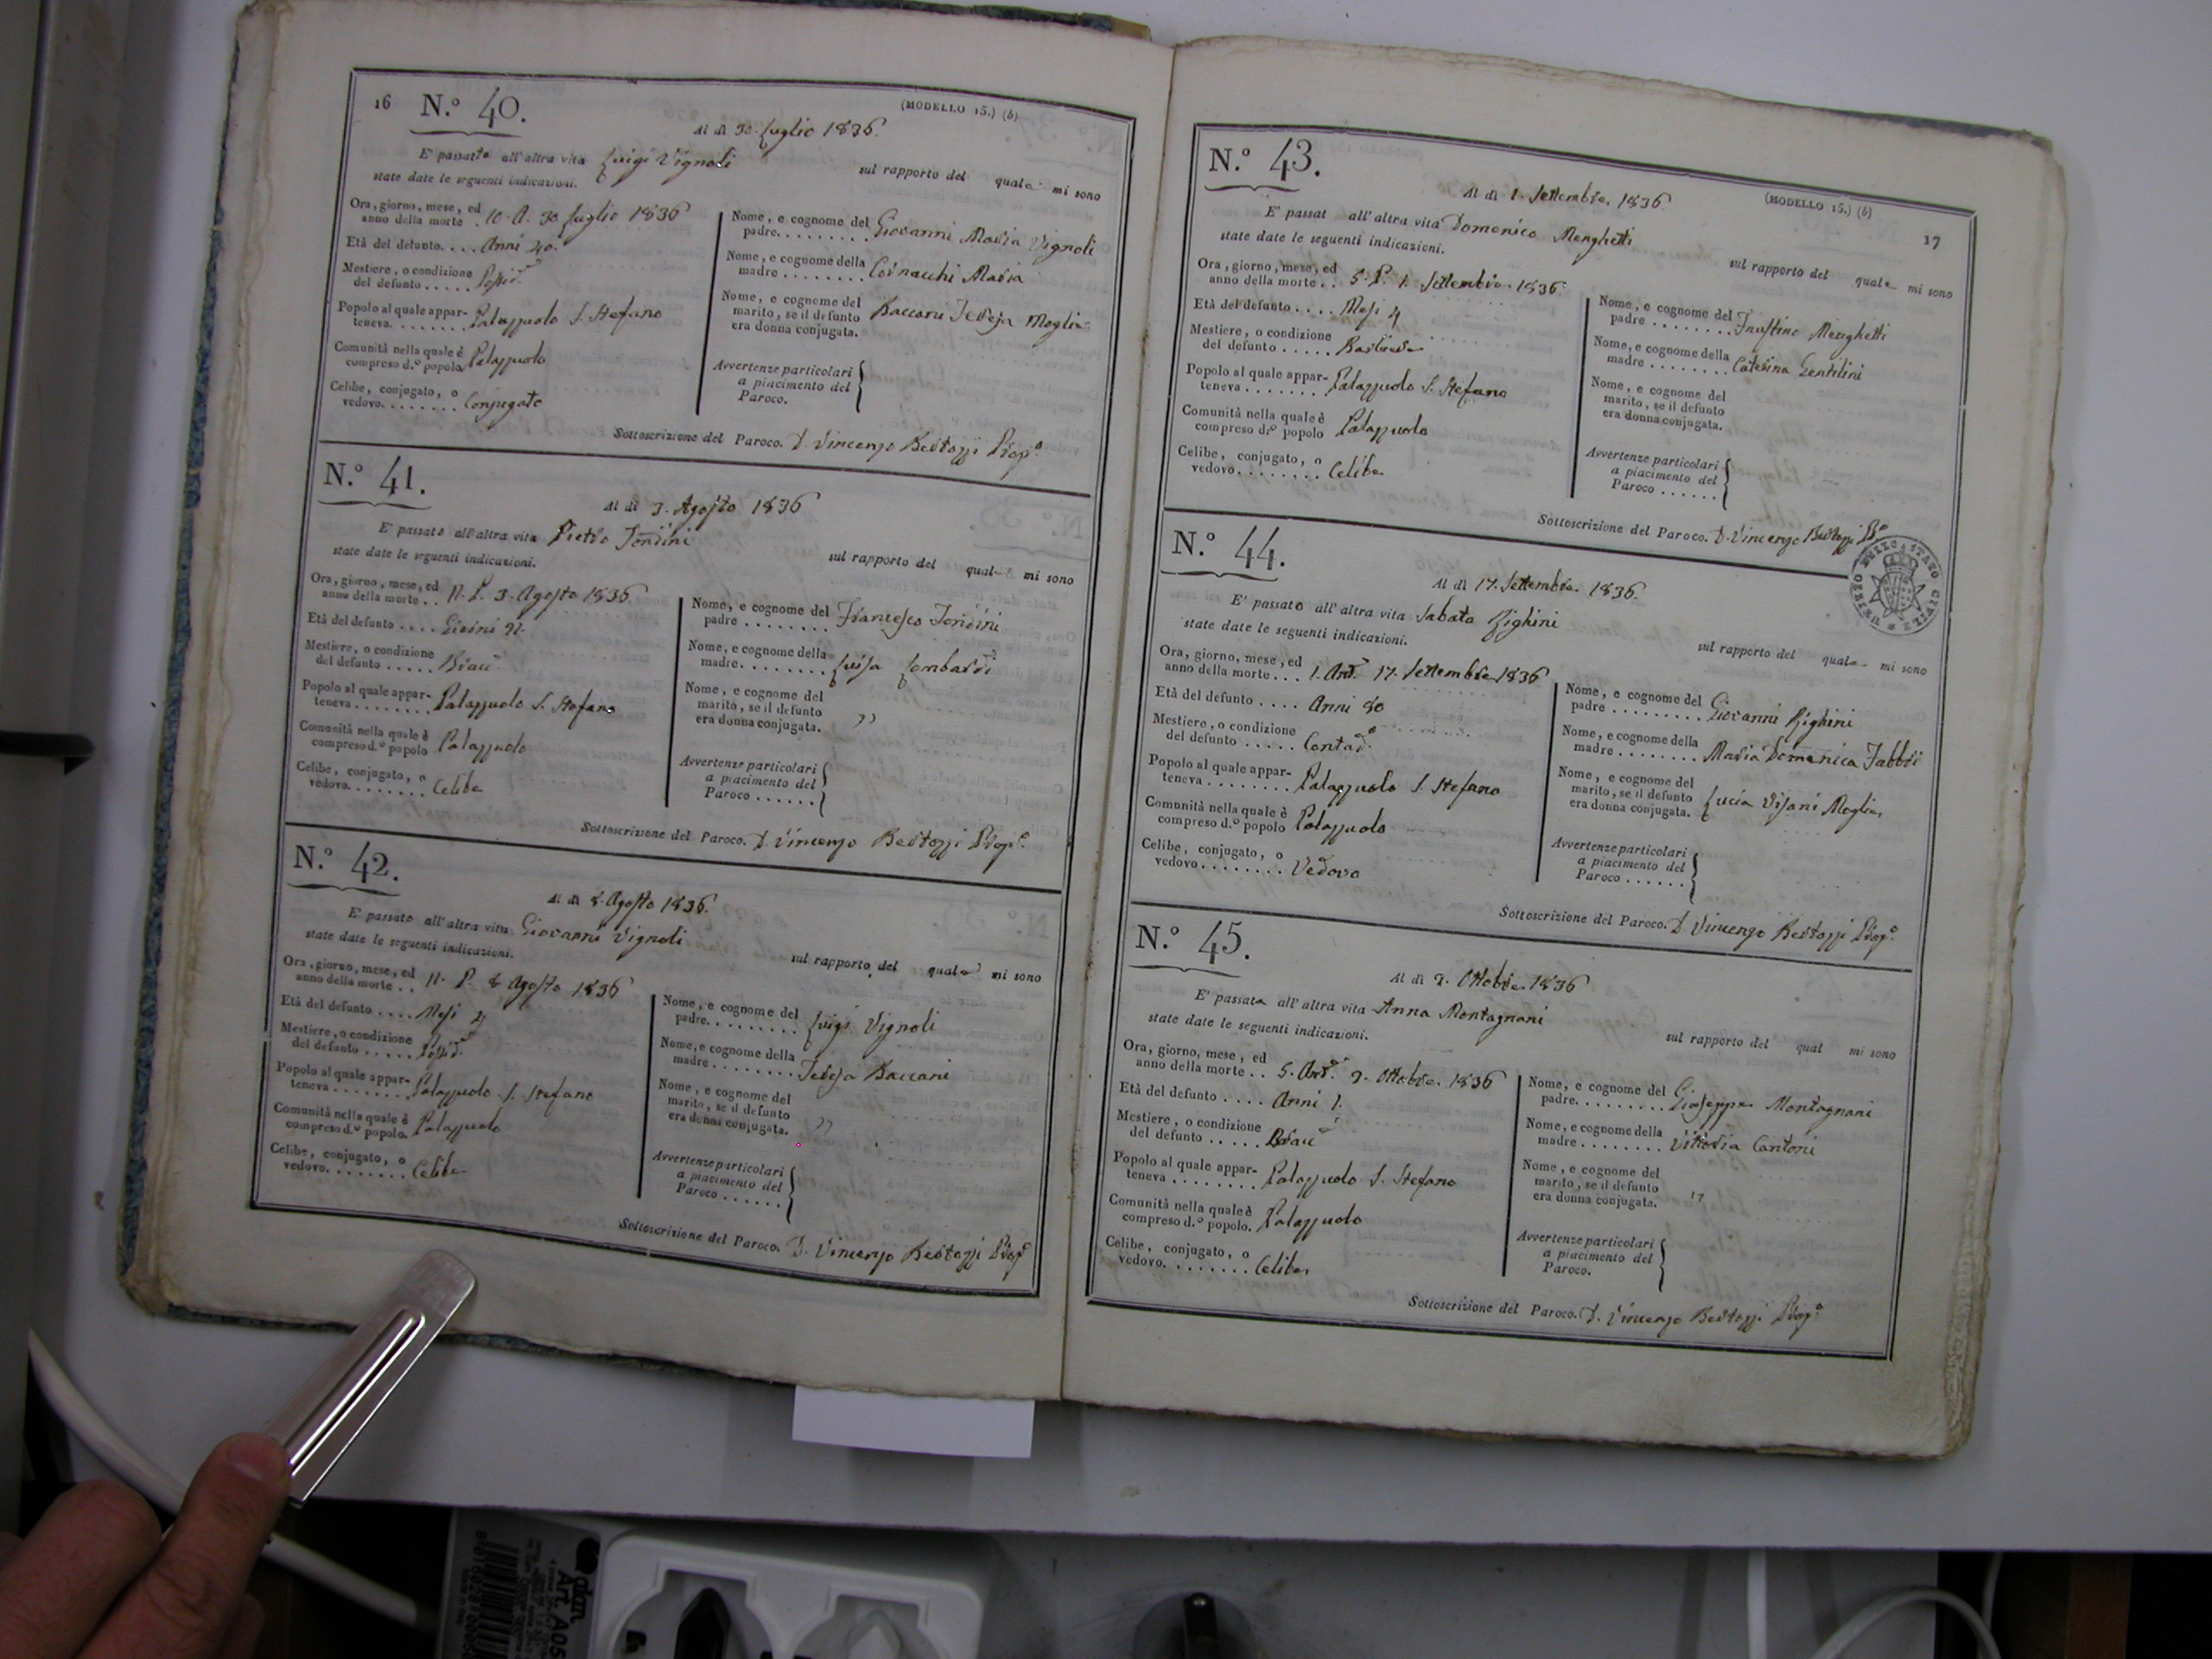 16 N.º 40. (MODELLO 15.) (b)
Al dì 30. Luglio 1836.
E' passato all'altra vita Luigi Vignoli sul rapporto del quale mi sono
state date le seguenti indicazioni.
Ora, giorno, mese, ed
anno della morte . 10. A. 30 Luglio 1836
Età del defunto. . . . Anni 40.
Mestiere, o condizione
del defunto . . . . . Possid.
Popolo al quale appar-
teneva. . . . . . . . Palazzuolo S. Stefano
Comunità nella quale è
compreso d.º popolo Palazzuolo
Celibe, conjugato, o
vedovo. . . . . . . . Conjugato
Nome, e cognome del
padre. . . . . . . . . Giovanni Maria Vignoli
Nome, e cognome della
madre . . . . . . . Cornacchi Maria
Nome, e cognome del
marito, se il defunto
era donna conjugata. Baccani Teresa Moglie
Avvertenze particolari
a piacimento del
Paroco.
Sottoscrizione del Paroco. D. Vincenzo Bertozzi Prop.º
N.º 41.
Al dì 3. Agosto 1836
E' passato all'altra vita Pietro Tondini sul rapporto del quale mi sono
state date le seguenti indicazioni.
Ora, giorno, mese, ed
anno della morte . . 11. P. 3. Agosto 1836
Età del defunto . . . . Giorni
Mestiere, o condizione
del defunto . . . . .
Popolo al quale appar-
teneva . . . . . . . . Palazzuolo S. Stefano
Comunità nella quale è
compreso d.º popolo Palazzuolo
Celibe, conjugato, o
vedovo. . . . . . . . Celibe
Nome, e cognome del
padre . . . . . . . . Francesco Tondini
Nome, e cognome della
madre. . . . . . . . Luisa Lombardi
Nome, e cognome del
marito, se il defunto
era donna conjugata. "
Avvertenze particolari
a piacimento del
Paroco . . . . . .
Sottoscrizione del Paroco. D. Vincenzo Bertozzi Prop.º
N.º 42.
Al dì 8. Agosto 1836.
E' passato all'altra vita Giovanni Vignoli sul rapporto del quale mi sono
state date le seguenti indicazioni.
Ora, giorno, mese, ed
anno della morte . . 11. P. 8 Agosto 1836
Età del defunto . . . . Mesi 4
Mestiere, o condizione
del defunto . . . . . Possid.
Popolo al quale appar-
teneva . . . . . . . . Palazzuolo S. Stefano
Comunità nella quale è
compreso d.º popolo. Palazzuolo
Celibe, conjugato, o
vedovo. . . . . . . . Celibe
Nome, e cognome del
padre. . . . . . . . . Luigi Vignoli
Nome, e cognome della
madre . . . . . . . . Teresa Baccani
Nome, e cognome del
marito, se il defunto
era donna conjugata. "
Avvertenze particolari
a piacimento del
Paroco . . . . . .
Sottoscrizione del Paroco. D. Vincenzo Bertozzi Prop.º
N.º 43. (MODELLO 15.) (b) 17
Al dì 1. Settembre. 1836
E' passat all'altra vita Domenico Menghetti sul rapporto del quale mi sono
state date le seguenti indicazioni.
Ora, giorno, mese, ed
anno della morte . . 5. P. 1. Settembre. 1836.
Età del defunto . . . . Mesi 4
Mestiere, o condizione
del defunto . . . . . Barbiere
Popolo al quale appar-
teneva . . . . . . . . Palazzuolo S. Stefano
Comunità nella quale è
compreso d.º popolo Palazzuolo
Celibe, conjugato, o
vedovo. . . . . . . . Celibe
Nome, e cognome del
padre . . . . . . . . Faustino Menghetti
Nome, e cognome della
madre . . . . . . . . Caterina Gentilini
Nome, e cognome del
marito, se il defunto
era donna conjugata.
Avvertenze particolari
a piacimento del
Paroco . . . . . .
Sottoscrizione del Paroco. D. Vincenzo Bertozzi P.º
UFFIZIO DELLO STATO CIVILE
N.º 44.
Al dì 17. Settembre. 1836.
E' passato all'altra vita Sabato Righini sul rapporto del quale mi sono
state date le seguenti indicazioni.
Ora, giorno, mese, ed
anno della morte . . . 1. Ant. 17. Settembre 1836
Età del defunto . . . . Anni 80
Mestiere, o condizione
del defunto . . . . . Contad.º
Popolo al quale appar-
teneva . . . . . . . . Palazzuolo S. Stefano
Comunità nella quale è
compreso d.º popolo Palazzuolo
Celibe, conjugato, o
vedovo. . . . . . . . Vedovo
Nome, e cognome del
padre . . . . . . . . . Giovanni Righini
Nome, e cognome della
madre . . . . . . . . Maria Domenica Fabbri
Nome, e cognome del
marito, se il defunto
era donna conjugata. Lucia Visani Moglie
Avvertenze particolari
a piacimento del
Paroco . . . . . .
Sottoscrizione del Paroco. D. Vincenzo Bertozzi Prop.º
N.º 45.
Al dì 9. Ottobre. 1836
E' passata all'altra vita Anna Montagnani sul rapporto del qual mi sono
state date le seguenti indicazioni.
Ora, giorno, mese, ed
anno della morte . . 5. Ant. 9. Ottobre. 1836
Età del defunto . . . . Anni 1.
Mestiere, o condizione
del defunto . . . . .
Popolo al quale appar-
teneva . . . . . . . . Palazzuolo S. Stefano
Comunità nella quale è
compreso d.º popolo. Palazzuolo
Celibe, conjugato, o
vedovo. . . . . . . . Celibe
Nome, e cognome del
padre. . . . . . . . . Giuseppe Montagnani
Nome, e cognome della
madre . . . . . . . . Vittoria Cantoni
Nome, e cognome del
marito, se il defunto
era donna conjugata. "
Avvertenze particolari
a piacimento del
Paroco.
Sottoscrizione del Paroco. D. Vincenzo Bertozzi Prop.º
Art. A05